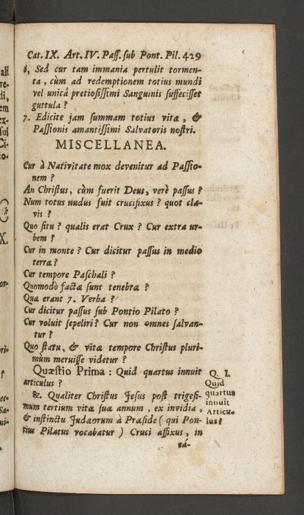 Cat. IX. Art. IV. Pass. sub Pont. Pil. 429
6. Sed cur tam immania pertulit tormen-
ta, cùm ad redemptionem totius mundi
vel unica pretiosissimi Sanguinis suffecisset
guttula ?
7. Edicite jam summam totius vitæ, &
Passionis amantissimi Salvatoris nostri.
MISCELLANEA.
Cur à Nativitate mox devenitur ad Passio-
nem ?
An Christus, cùm fuerit Deus, verè passus ?
Num totus nudus fuit crucifixus ? quot cla-
vis ?
Quo situ ? qualis erat Crux ? Cur extra ur-
bem ?
Cur in monte ? Cur dicitur passus in medio
terræ ?
Cur tempore Paschali ?
Quomodo factæ sunt tenebræ ?
Quæ erant 7. Verba ?
Cur dicitur passus sub Pontio Pilato ?
Cur voluit sepeliri ? Cur non omnes salvan-
tur ?
Quo statu, & vitæ tempore Christus pluri-
mùm meruisse videtur ?
Quæstio Prima : Quid quartus innuit
articulus ?
Q. I.
Quid
quartus
innuit
Articu-
lus ?
&. Qualiter Christus Jesus post trigesi-
mum tertium vitæ suæ annum, ex invidia,
& instinctu Judæorum à Præside ( qui Pon-
tius Pilatus vocabatur ) Cruci affixus, in
ea-